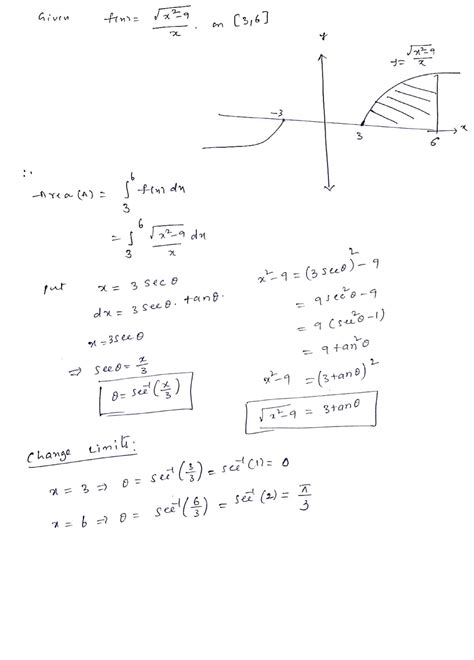 Given f(x) = √(x²-9)/x, on [3,6]
y
y = √(x²-9)/x
-3
3
6
x
∴
Area (A) = ∫₃⁶ f(x) dx
= ∫₃⁶ √(x²-9)/x dx
put x = 3 sec θ
dx = 3 sec θ · tan θ.
x = 3 sec θ
⇒ sec θ = x/3
θ = sec⁻¹(x/3)
x²-9 = (3 sec θ)² - 9
= 9 sec² θ - 9
= 9 (sec² θ - 1)
= 9 tan² θ
x²-9 = (3 tan θ)²
√(x²-9) = 3 tan θ
Change Limits:
x = 3 ⇒ θ = sec⁻¹(3/3) = sec⁻¹(1) = 0
x = 6 ⇒ θ = sec⁻¹(6/3) = sec⁻¹(2) = π/3